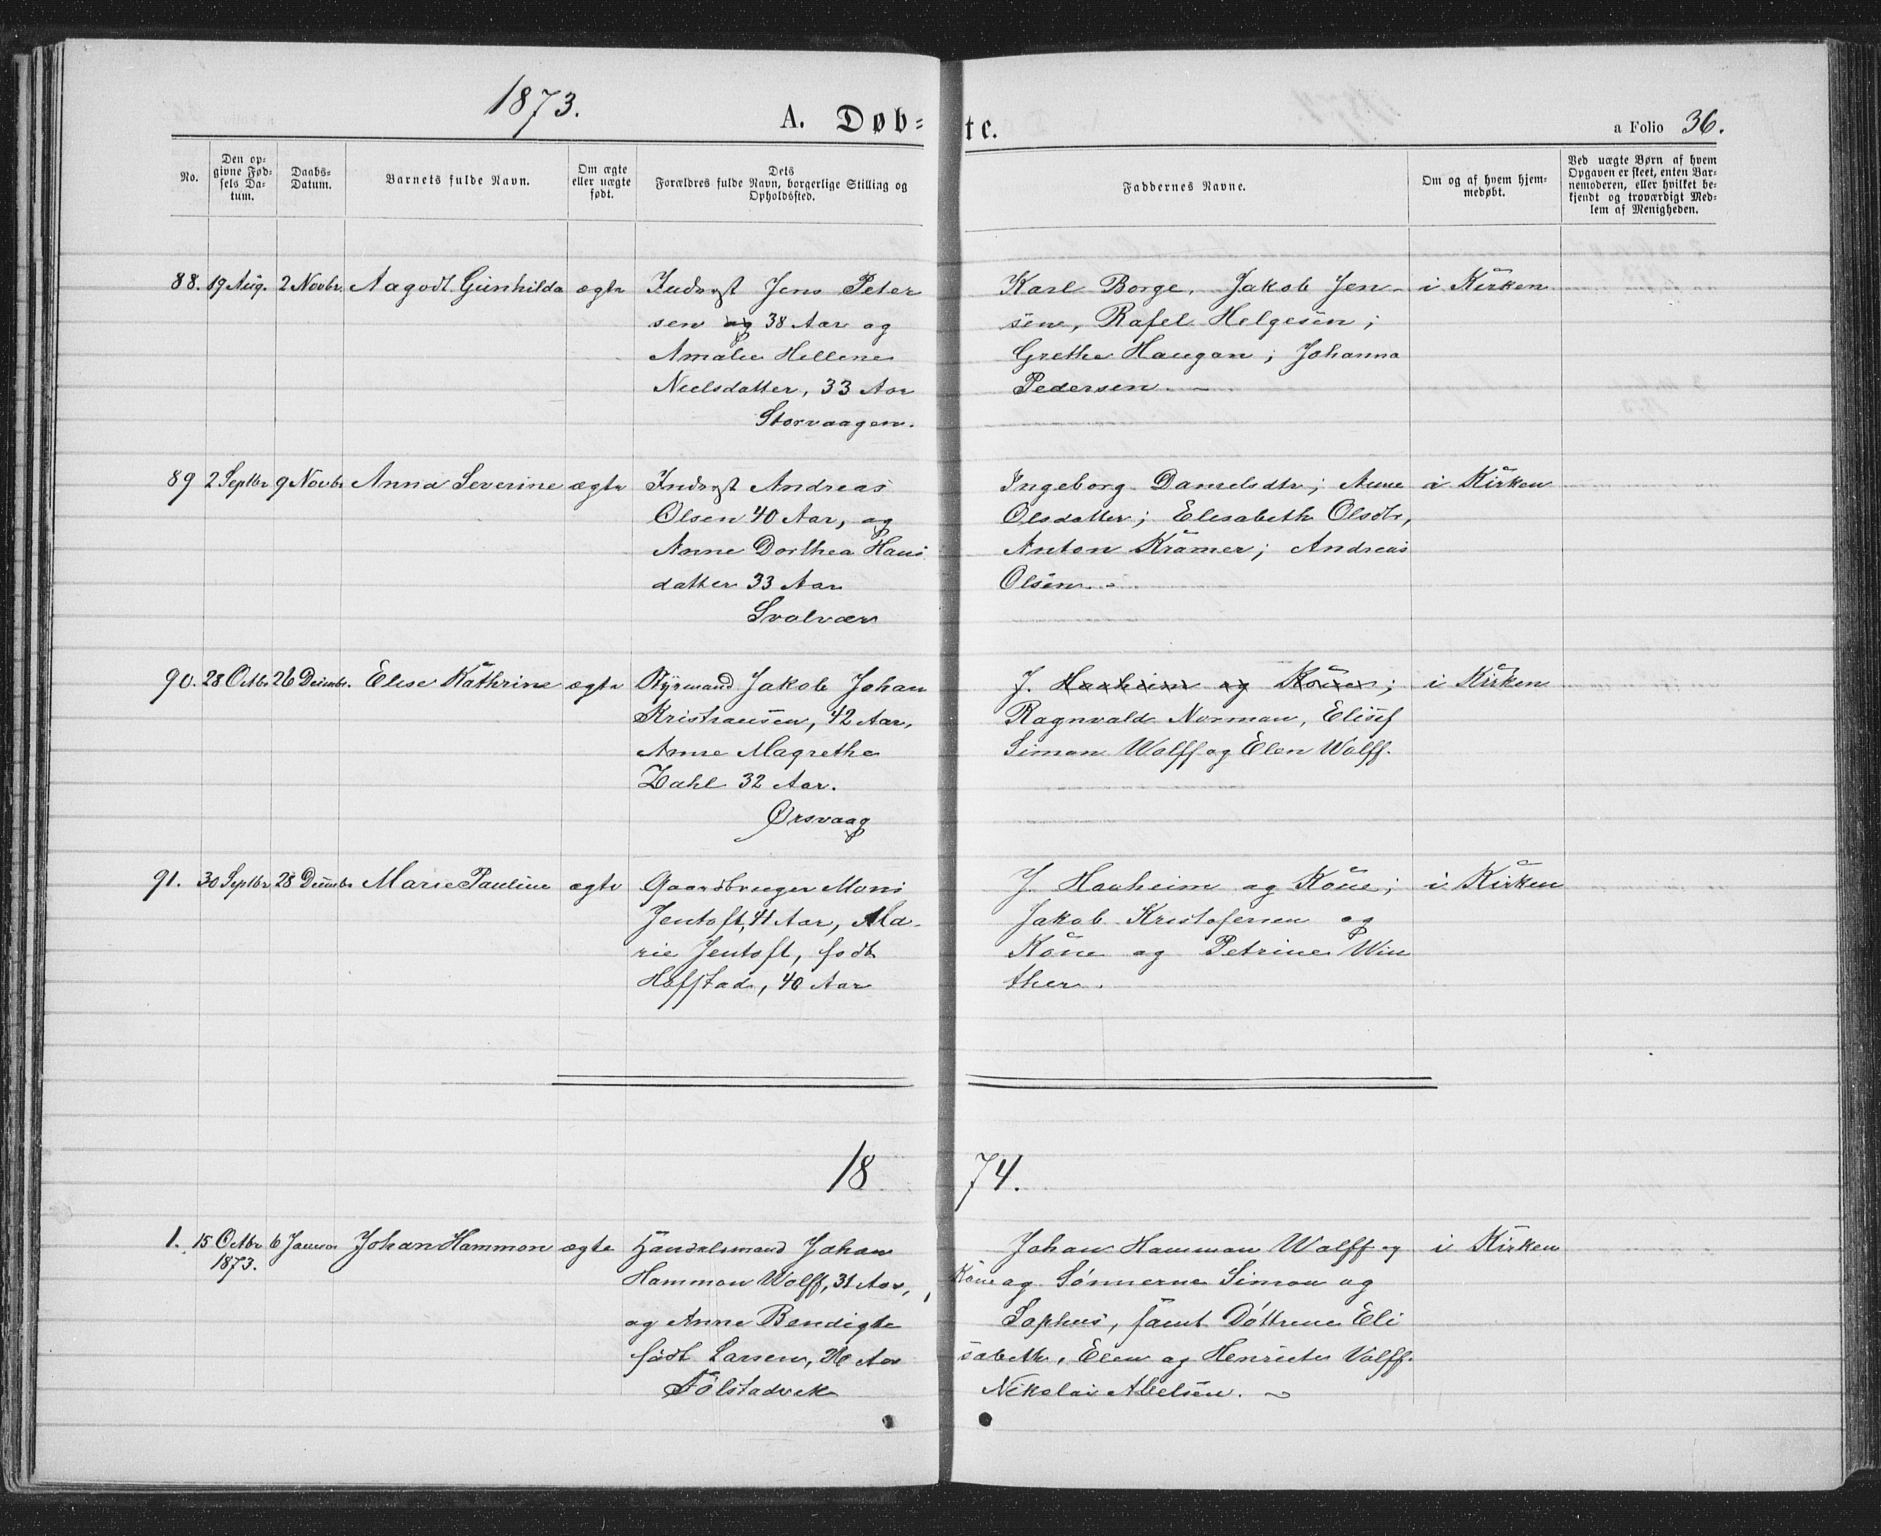 1873.
A. Døb=
te.
a Folio 36.
No.
Den op=
givne Fød=
sels Da=
tum.
Daabs=
Datum.
Barnets fulde Navn.
Om ægte
eller uægte
født.
Dets
Forældres fulde Navn, borgerlige Stilling og
Opholdssted.
Faddernes Navne.
Om og af hvem hjem=
medøbt.
Ved uægte Børn af hvem
Opgaven er skeet, enten Bar=
nemoderen, eller hvilket be=
kjendt og troværdigt Med=
lem af Menigheden.
88. 19 Aug. 2 Novbr. Aagodt Gunhilda ægte Indsvgt Jens Peter Karl Borge, Jakob Jen- i Kirken
sen og 38 Aar og sen, Rafel Helgesen;
Amalie Hellene Grethe Haugan; Johanna
Nielsdatter, 33 Aar Pedersen.
Storvaagen.
89 2 Septbr 9 Novbr Anna Severine ægte Indsvgt Andreas Ingeborg Danielsdtr; Anne i Kirken
Olsen 40 Aar, og Olsdatter; Elisabeth Olsdtr,
Anne Dorthea Hans Anton Kramer; Andreas
datter 33 Aar Olsen.
Svolvær
90. 28 Octbr 26 Decembr. Elise Kathrine ægte Styrmand Jakob Johan J. Hauheim og Kone; i Kirken
Kristiansen, 42 Aar, Ragnvald Norman, Elisef
Anne Magrethe Simon Wolff og Elen Wolff.
Dahl 32 Aar.
Ørsvaag
91. 30 Septbr 28 Decembr Marie Pauline ægte Gaardbruger Mons J. Hauheim og Kone; i Kirken
Jentoft, 41 Aar, Ma- Jakob Kristofersen og
rie Jentoft, født Kone og Petrine Win
Hofstad, 40 Aar ther.
18 74.
1. 15 Octbr 6 Januar Johan Hammon ægte Handelsmand Johan Johan Hammon Wolff og i Kirken
1873. Hammon Wolff, 31 Aar, Kone og Sønnerne Simon og
og Anne Bendigte Sophus, samt Døttrene Eli
født Larsen, 26 Aar sabeth, Elen og Henriete Wolff.
Følstadvik Nikolai Abelsen.